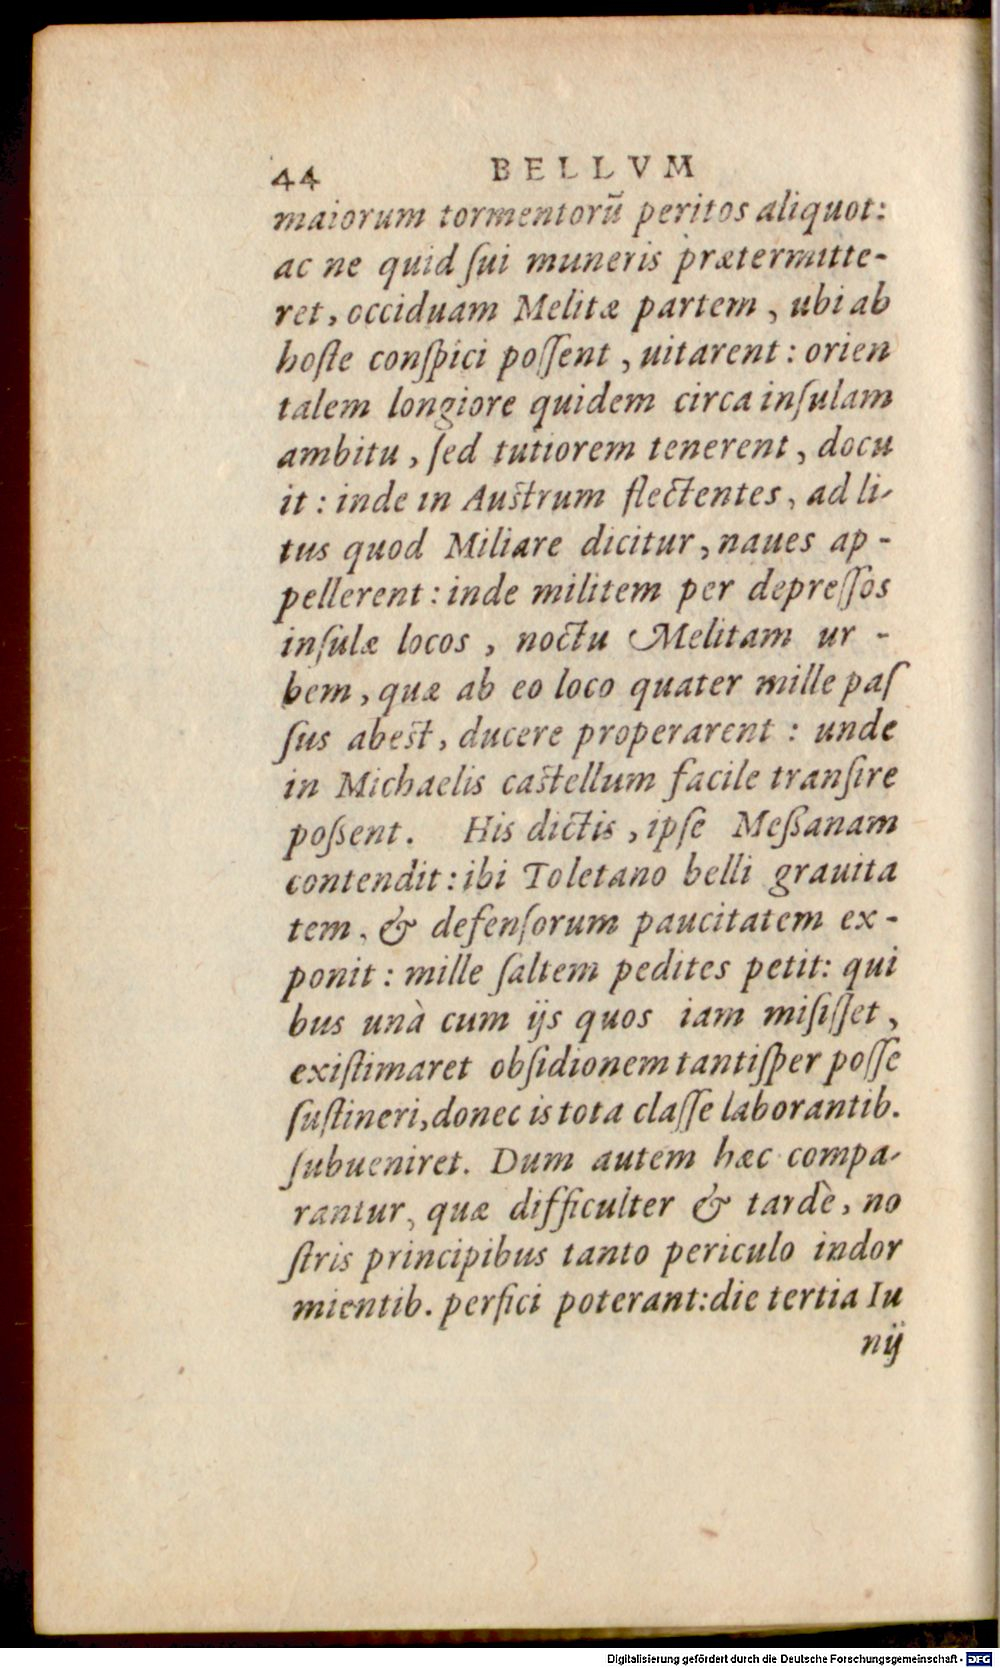 44 BELLVM
maiorum tormentorũ peritos aliquot:
ac ne quid ſui muneris prætermitte-
ret, occiduam Melitæ partem, ubi ab
hoſte conſpici poſſent, uitarent: orien
talem longiore quidem circa inſulam
ambitu, ſed tutiorem tenerent, docu
it: inde in Auſtrum flectentes, ad li-
tus quod Miliare dicitur, naues ap-
pellerent: inde militem per depreſſos
inſulæ locos, noctu Melitam ur-
bem, quæ ab eo loco quater mille paſ
ſus abeſt, ducere properarent: unde
in Michaelis caſtellum facile tranſire
poßent. His dictis, ipſe Meßanam
contendit: ibi Toletano belli grauita
tem, & defenſorum paucitatem ex-
ponit: mille ſaltem pedites petit: qui
bus unà cum ijs quos iam miſiſſet,
exiſtimaret obſidionem tantiſper poſſe
ſuſtineri, donec is tota claſſe laborantib.
ſubueniret. Dum autem hæc compa-
rantur, quæ difficulter & tardè, no
ſtris principibus tanto periculo indor
mientib. perfici poterant: die tertia Iu
nij
Digitalisierung gefördert durch die Deutsche Forschungsgemeinschaft - DFG